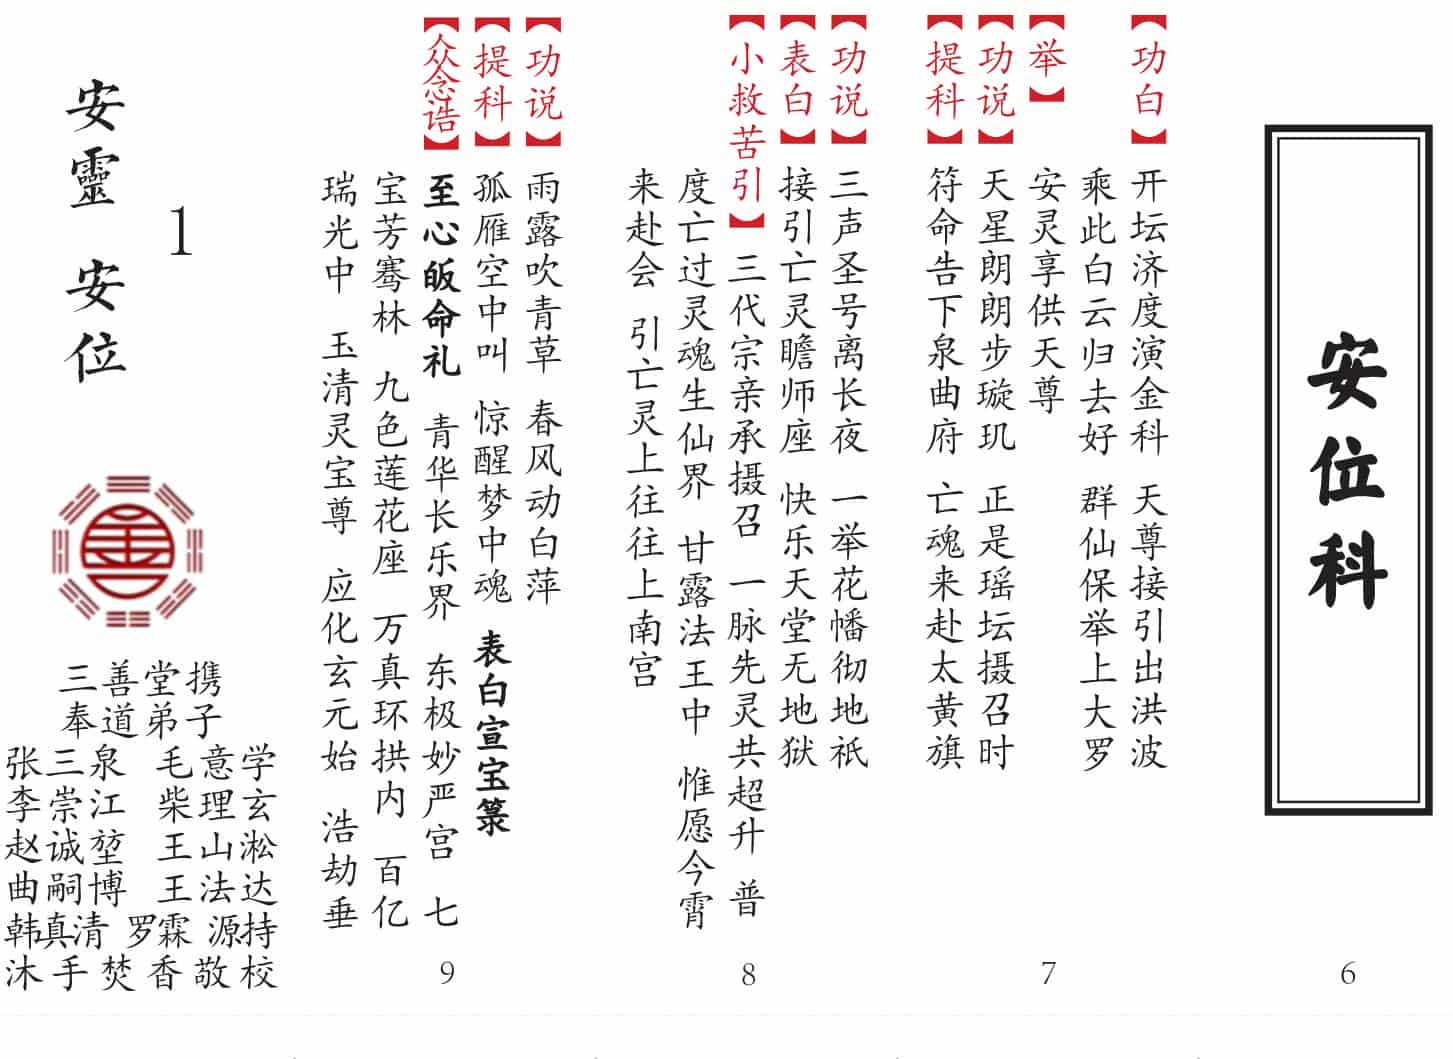 安位科
6
【功白】 开坛济度演金科 天尊接引出洪波
乘此白云归去好 群仙保举上大罗
【举】 安灵享供天尊
【功说】 天星朗朗步璇玑 正是瑶坛摄召时
【提科】 符命告下泉曲府 亡魂来赴太黄旗
7
【功说】 三声圣号离长夜 一举花幡彻地祇
【表白】 接引亡灵瞻师座 快乐天堂无地狱
【小救苦引】 三代宗亲承摄召 一脉先灵共超升 普
度亡过灵魂生仙界 甘露法王中 惟愿今霄
来赴会 引亡灵上往往上南宫
8
【功说】 雨露吹青草 春风动白萍
【提科】 孤雁空中叫 惊醒梦中魂 表白宣宝箓
【众念诰】 至心皈命礼 青华长乐界 东极妙严宫 七
宝芳骞林 九色莲花座 万真环拱内 百亿
瑞光中 玉清灵宝尊 应化玄元始 浩劫垂
9
1
安靈 安位
三善堂携
奉道弟子
张三泉 毛意学
李崇江 柴理玄
赵诚堃 王山淞
曲嗣博 王法达
韩真清 罗霖 源持
沐手焚香敬校